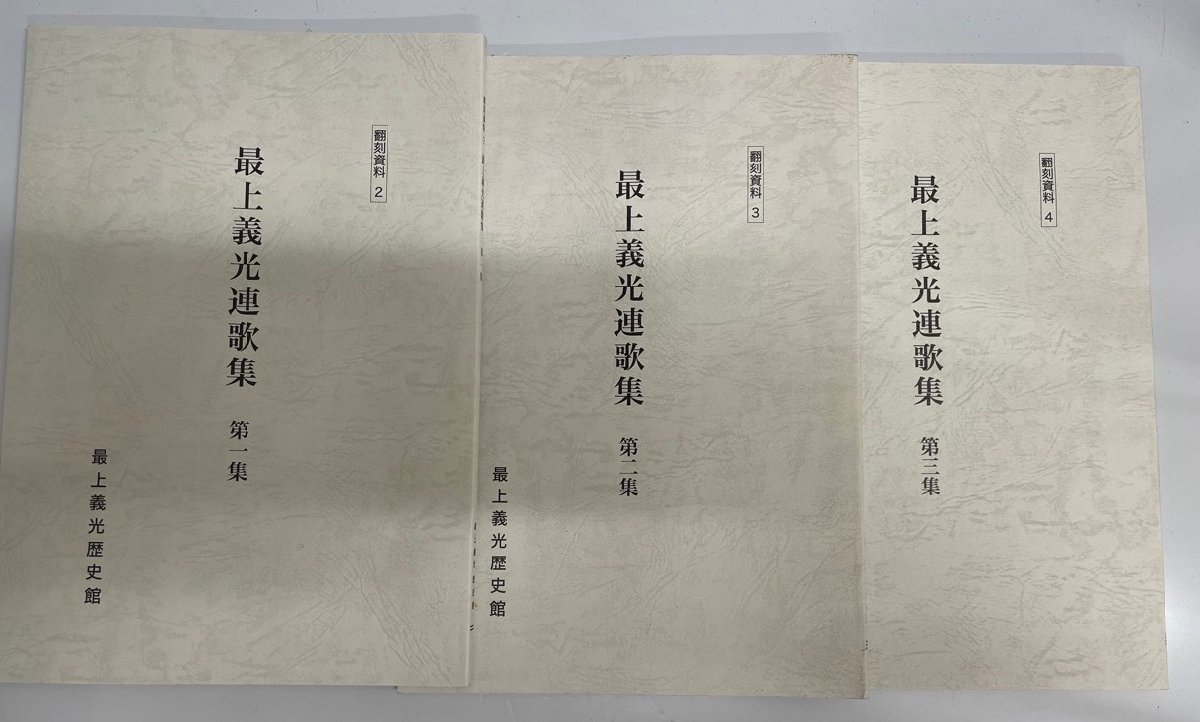 翻刻資料 2
最上義光連歌集 第一集
最上義光歴史館
翻刻資料 3
最上義光連歌集 第二集
最上義光歴史館
翻刻資料 4
最上義光連歌集 第三集